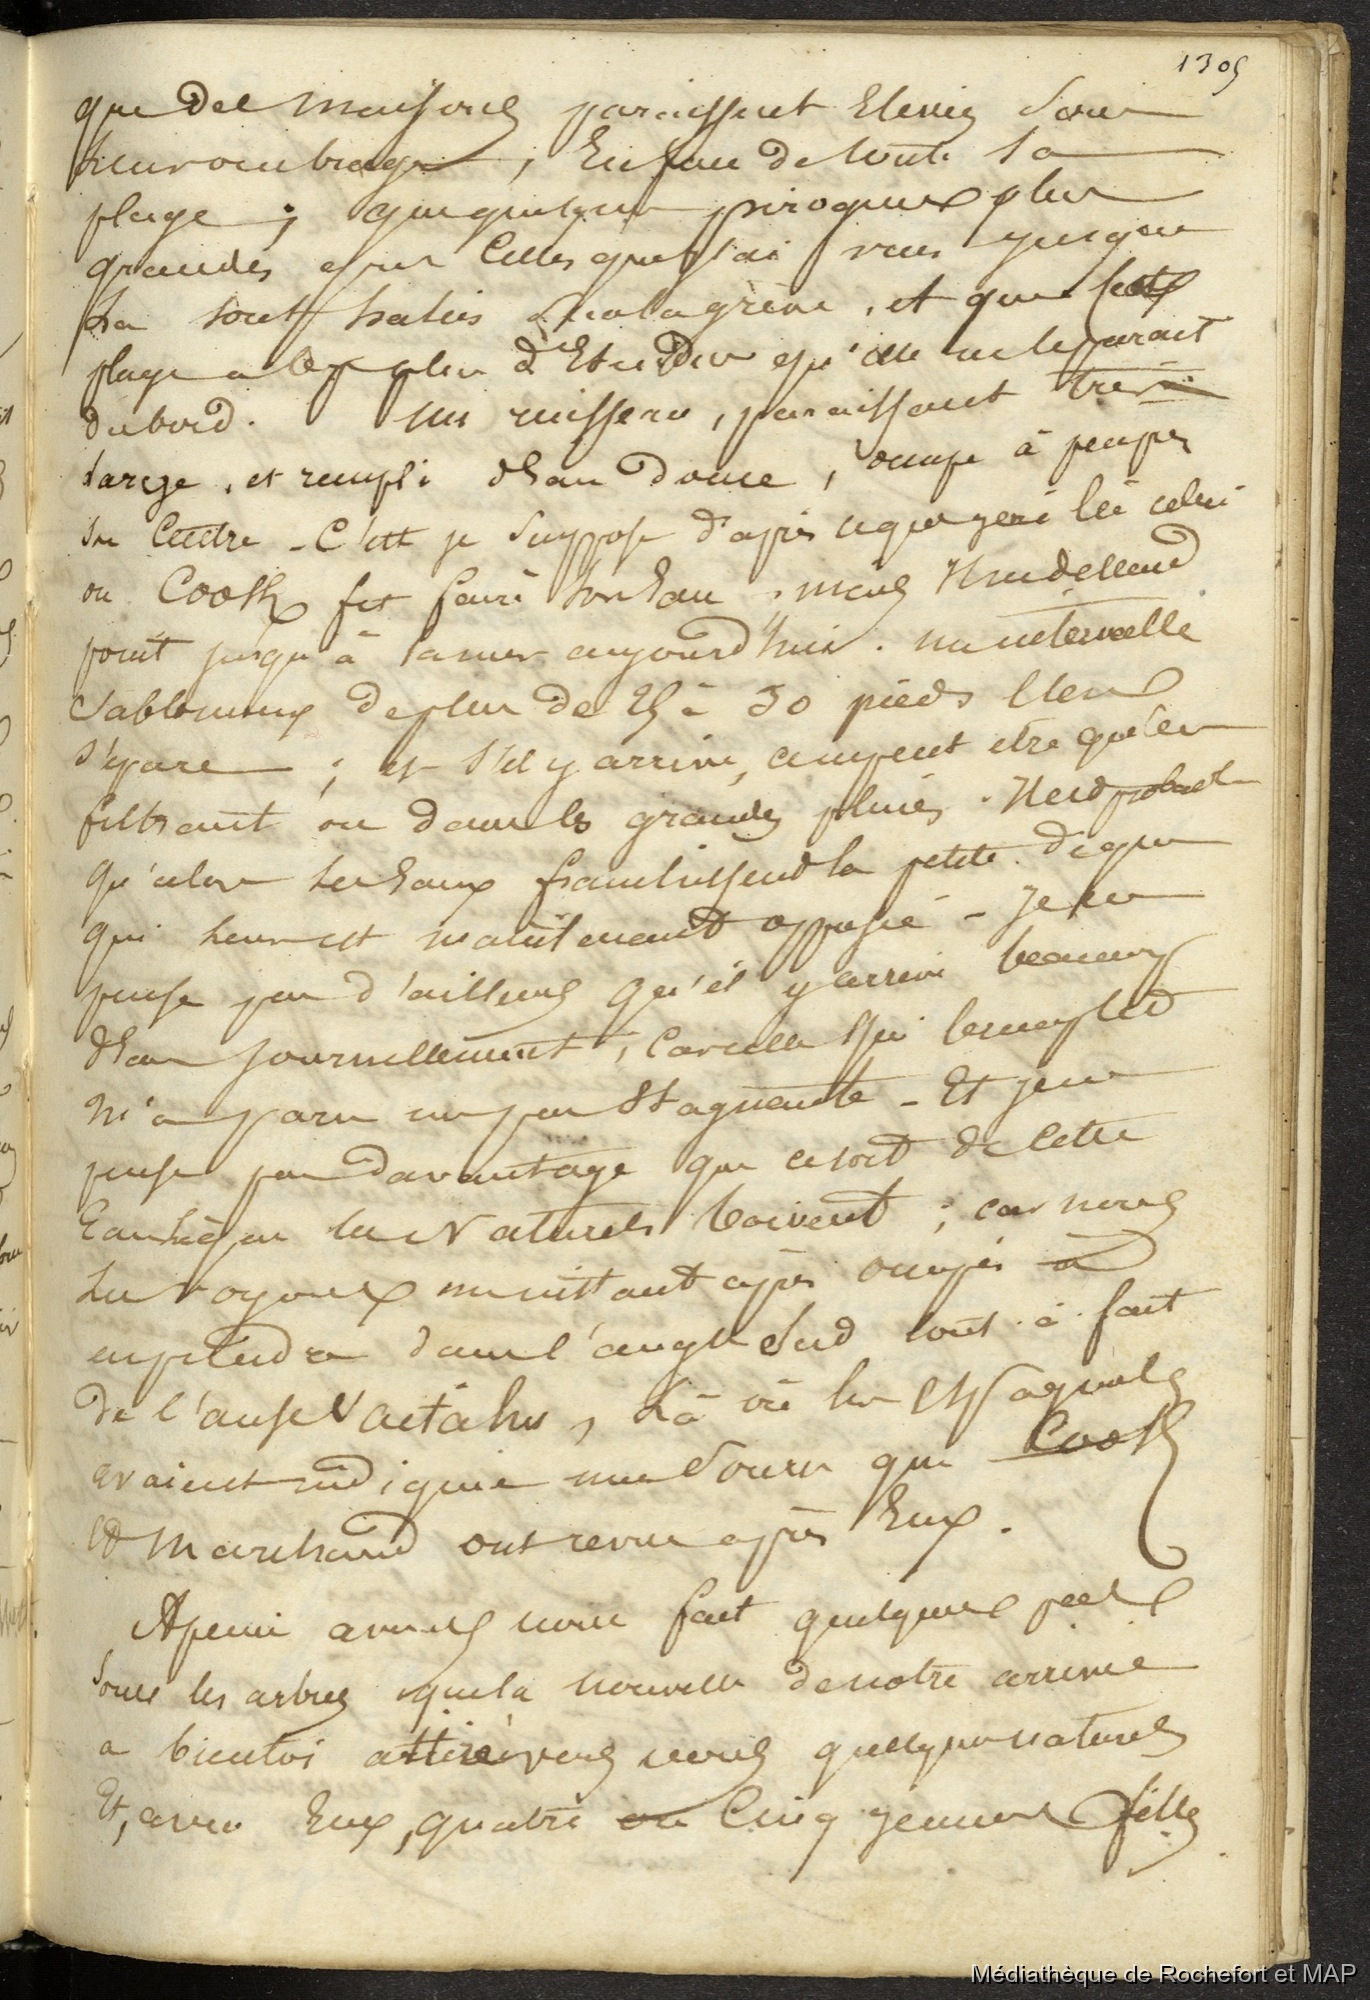 1305
que des maisons paraissent Elevées sous
leur ombrage, En face de toute la
plage; que quelques pirogues plus
grandes que Celles que j'ai vues jusque
La sont halées sur la grève, et que cette
plage a plus d'Etendue qu'elle ne le parait
dabord. Un ruisseau, paraissant très
large, et rempli d'Eau douce, occupe à peu près
le Centre - C'est je suppose d'après ce que j'en ai lû celui
ou Cook fit faire son Eau, mais Il ne descend
point jusqu'à la mer aujourd'hui. un intervalle
Sablonneux de plus de 25 à 30 pieds l'en
sépare; et s'il y arrive, ce ne peut etre qu'en
filtrant ou dans les grandes pluies. Il est probable
qu'alors les Eaux franchissent la petite digue
qui leur est maintenant opposée - Je ne
pense pas d'ailleurs qu'il y arrive beaucoup
d'Eau journellement, Car celle qui le remplit
m'a paru un peu Stagnante - Et je ne
pense pas davantage que ce soit de Cette
Eau là que les Naturels boivent; car nous
les voyons un instant après occupés à
en prendre dans l'angle Sud tout à fait
de l'anse Vaitahu, Là où les Espagnols
avaient indiqué une Source que Cook
Et Marchand ont revue après Eux.
A peine avons nous fait quelques pas
sous les arbres que la nouvelle de notre arrivée
a bientôt attiré vers nous quelques naturels
Et, avec Eux, quatre ou Cinq jeunes filles
Médiathèque de Rochefort et MAP